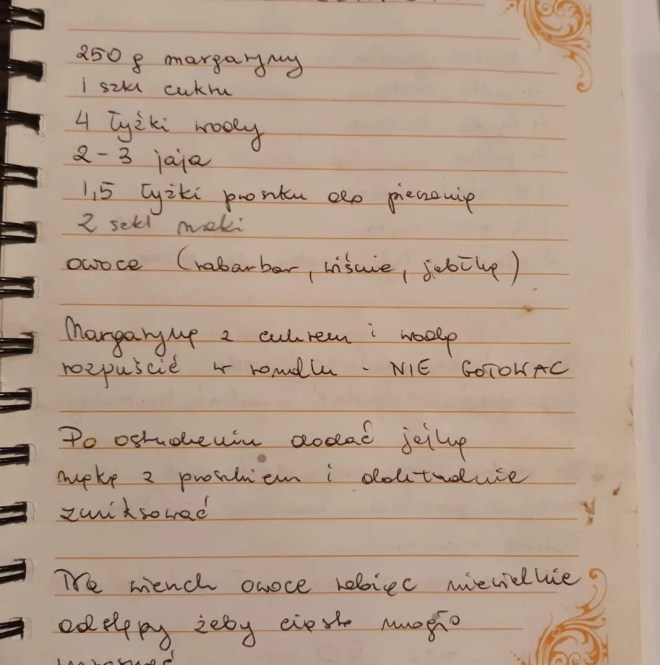 250 g margaryny
1 szkl cukru
4 łyżki wody
2-3 jaja
1,5 łyżki proszku do pieczenia
2 szkl mąki
owoce (rabarbar, wiśnie, jabłka)
Margarynę z cukrem i wodą
rozpuścić w rondlu - NIE GOTOWAĆ
Po ostudzeniu dodać jajka
mąkę z proszkiem i dokładnie
zmiksować
Na wierzch owoce robiąc niewielkie
odstępy żeby ciasto mogło